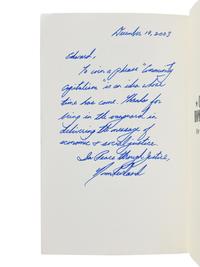 December 10, 2003
Edward,
To coin a phrase "Community
Capitalism" is an idea whose
time has come. Thanks for
being in the vanguard in
delivering the message of
economic & social justice.
In Peace through Justice,